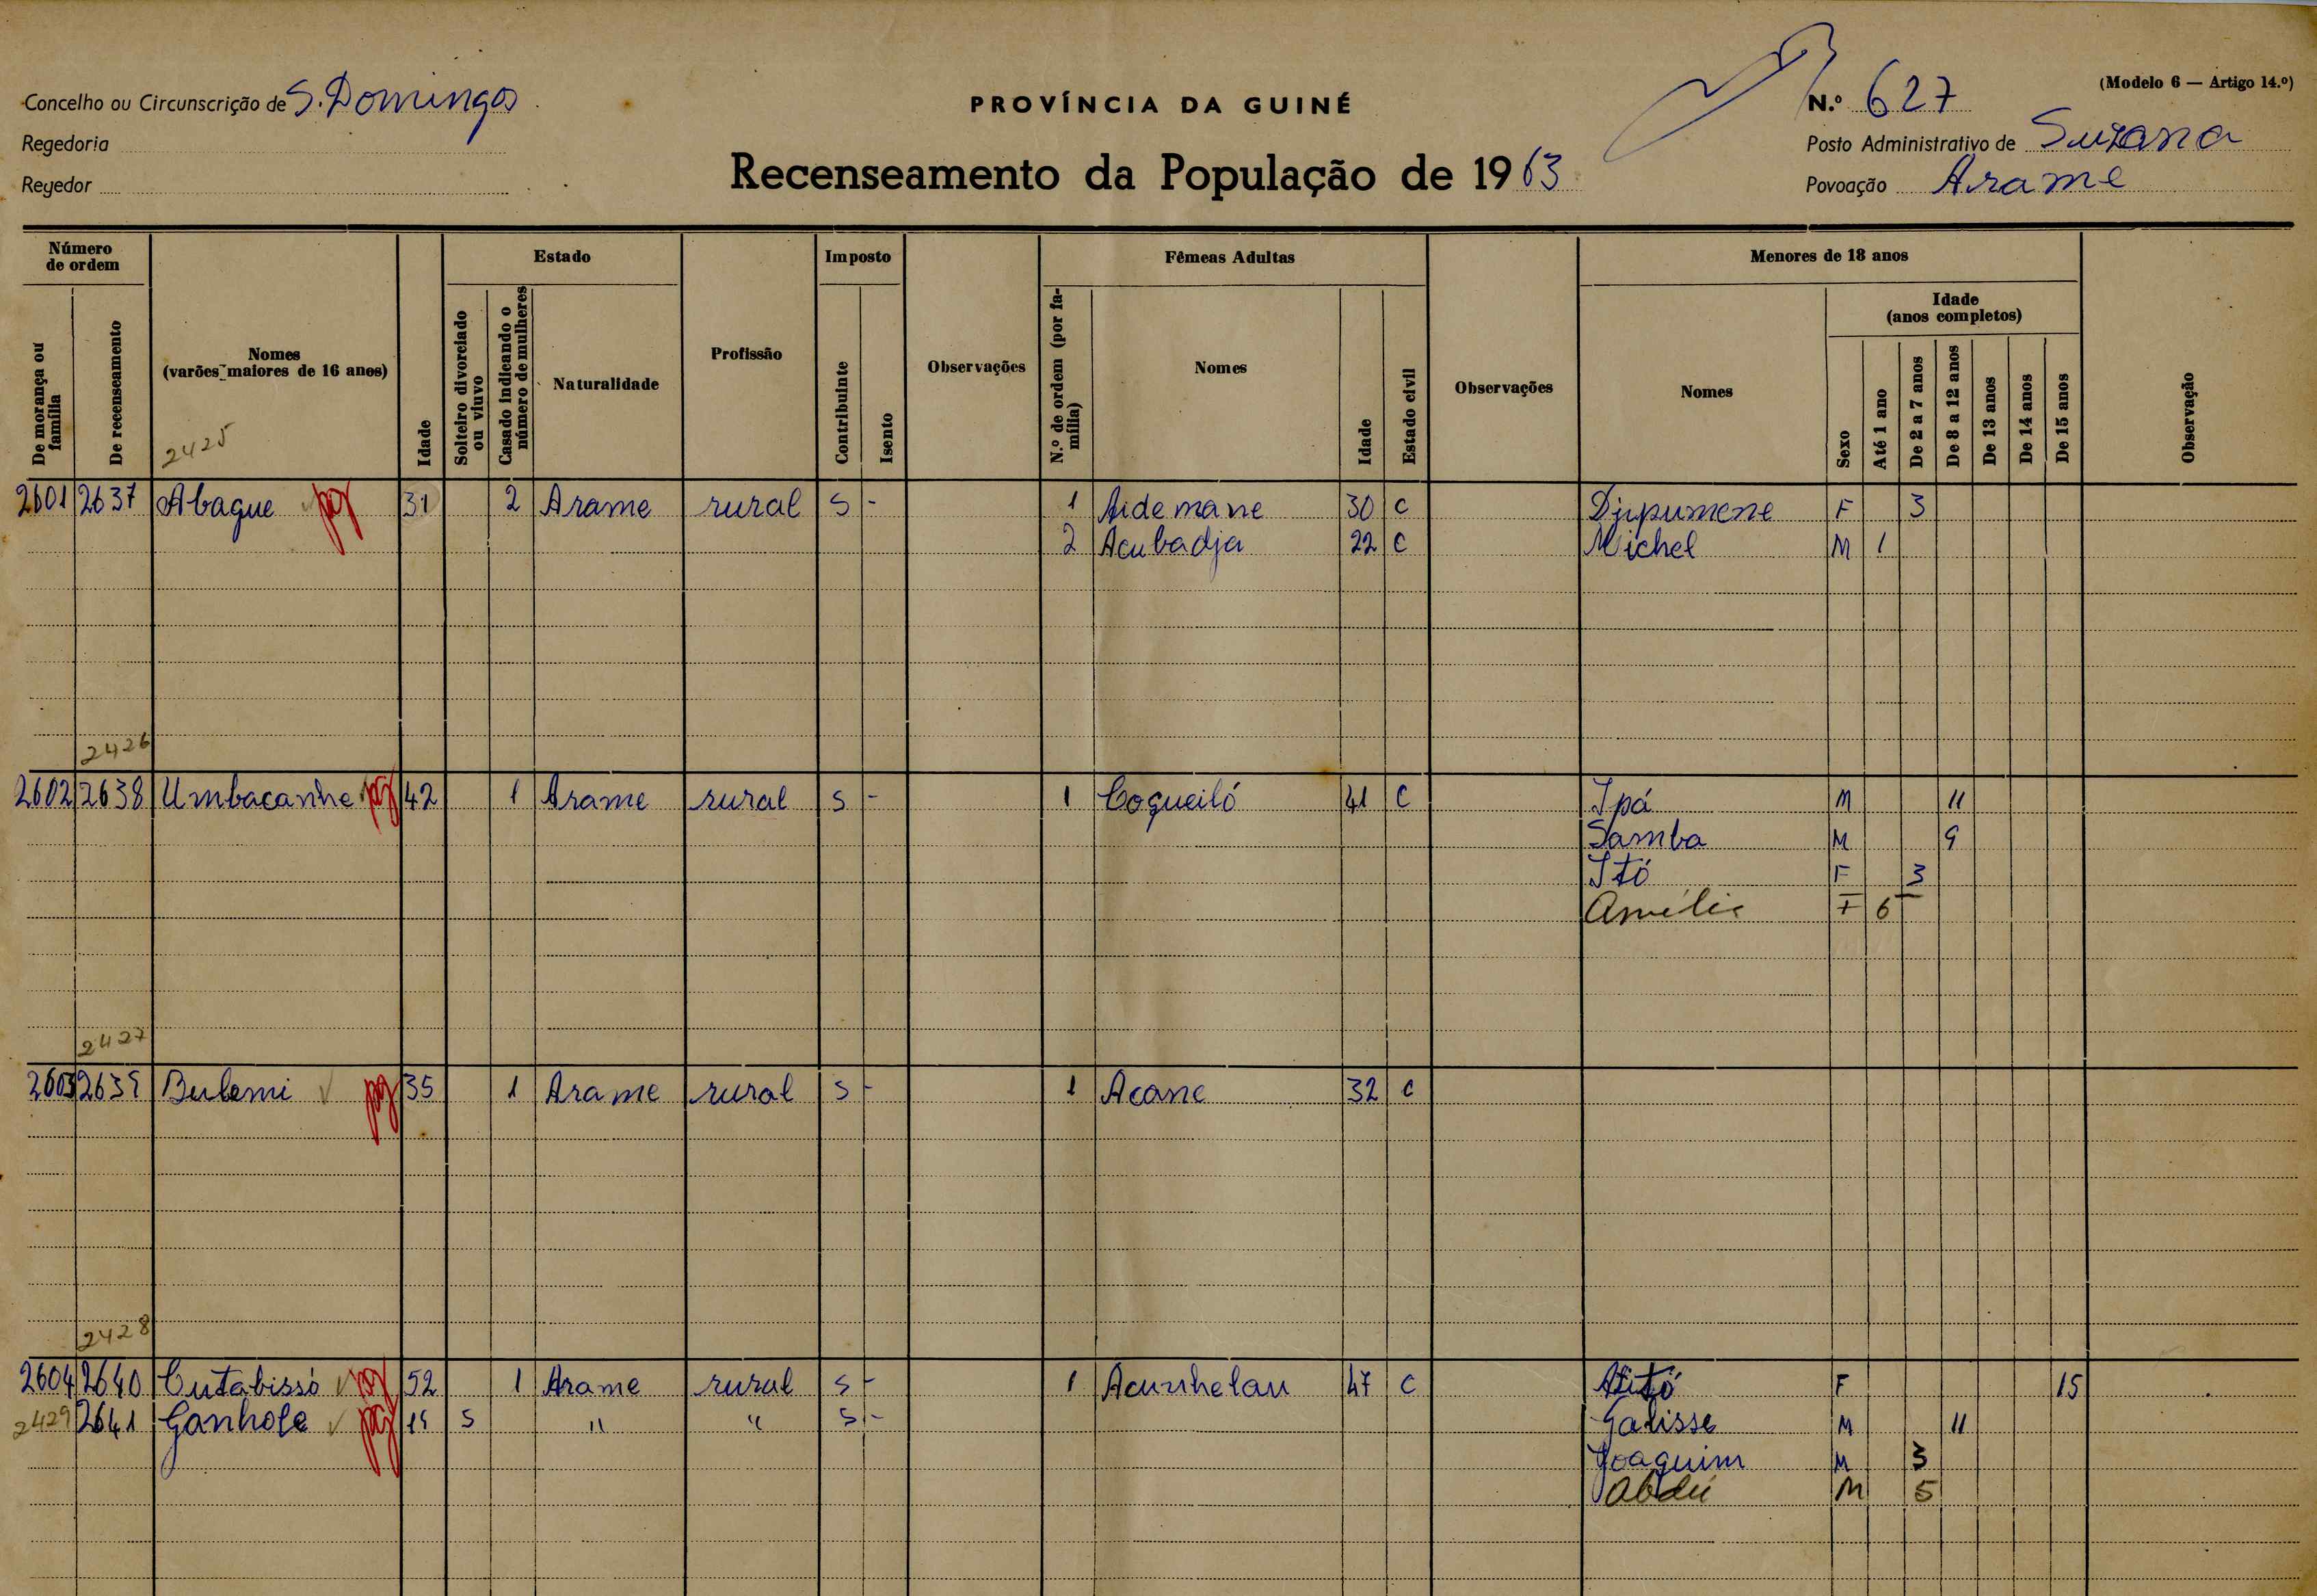 (Modelo 6 — Artigo 14.º)
Concelho ou Circunscrição de S. Domingos
PROVÍNCIA DA GUINÉ
N.º 627
Regedoria
Posto Administrativo de Suzana
Regedor
Recenseamento da População de 1963
Povoação Arame
Número de ordem
Estado
Imposto
Fêmeas Adultas
Menores de 18 anos
De morança ou família
De recenseamento
Nomes (varões maiores de 16 anos)
Idade
Solteiro divorciado ou viuvo
Casado indicando o número de mulheres
Naturalidade
Profissão
Contribuinte
Isento
Observações
N.º de ordem (por família)
Nomes
Idade
Estado civil
Observações
Nomes
Sexo
Idade (anos completos)
Até 1 ano
De 2 a 7 anos
De 8 a 12 anos
De 13 anos
De 14 anos
De 15 anos
Observação
2425
2601 2637 Abague pg 31 2 Arame rural S - 1 Aidemane 30 C Djipumene F 3
2 Acubadja 22 C Michel M 1
2426
2602 2638 Umbacanhe pg 42 1 Arame rural S - 1 Coqueiló 41 C Ipá M 11
Samba M 9
Itó F 3
Amélia F 6
2427
2603 2639 Bulemi pg 35 1 Arame rural S - 1 Acane 32 C
2428
2604 2640 Cutabissó pg 52 1 Arame rural S - 1 Acunhelau 47 C F 15
2429 2641 Ganhole pg 19 S " " S - Galisse M 11
Joaquim M 3
Abdú M 5